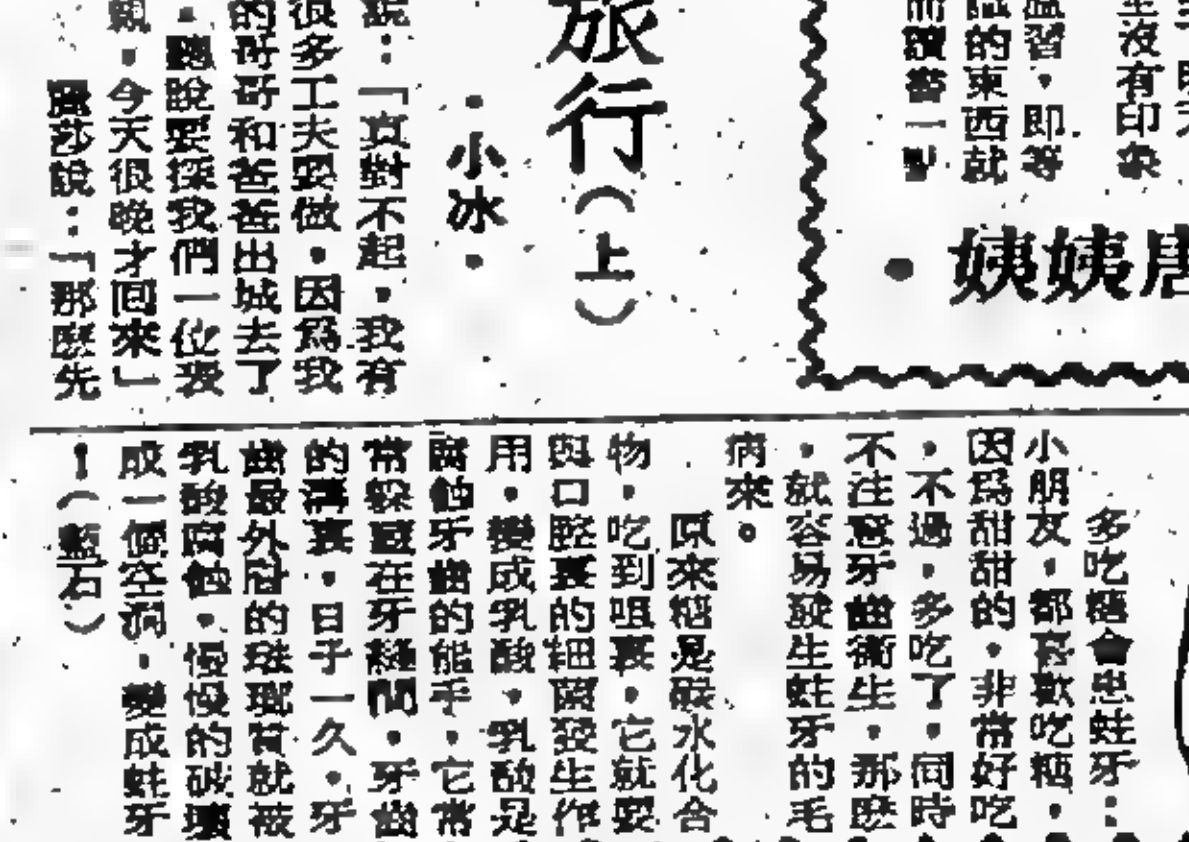 生沒有印象
溫習，即等
的東西就
而讀書一點
唐姨姨・
旅行（上）
・小冰・
說：「真對不起，我有
很多工夫要做，因爲我
的哥哥和爸爸出城去了
，聽說要探我們一位表
親，今天很晚才回來」
露莎說：「那麽先
多吃糖會患蛀牙：
小朋友，都喜歡吃糖，
因爲甜甜的，非常好吃
，不過，多吃了，同時
不注意牙齒衞生，那麽
，就容易發生蛀牙的毛
病來。
原來糖是碳水化合
物，吃到咀裏，它就要
與口腔裏的細菌發生作
用，變成乳酸，乳酸是
腐蝕牙齒的能手，它常
常躲藏在牙縫間，牙齒
的溝裏，日子一久，牙
齒最外層的琺瑯質就被
乳酸腐蝕，慢慢的破壞
成一個空洞，變成蛀牙
！（藍石）